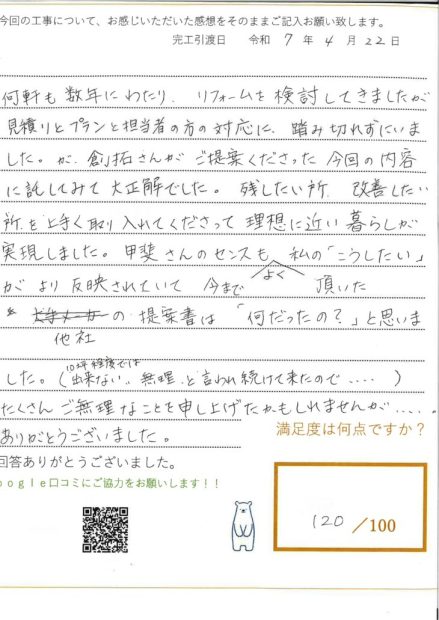 今回の工事について、お感じいただいた感想をそのままご記入お願い致します。
完工引渡日　令和 7 年 4 月 22 日
何軒も数年にわたり、リフォームを検討してきましたが
見積りとプランと担当者の方の対応に、踏み切れずにいま
した。が、創拓さんがご提案くださった今回の内容
に託してみて大正解でした。残したい所、改善したい
所を上手く取り入れてくださって理想に近い暮らしが
実現しました。甲斐さんのセンスも 私の「こうしたい」
よく
がより反映されていて 今まで 頂いた
の提案書は「何だったの？」と思いま
他社
10坪程度では
した。（出来ない、無理、と言われ続けて来たので....）
たくさんご無理なことを申し上げたかもしれませんが.....
ありがとうございました。
満足度は何点ですか？
回答ありがとうございました。
oogle口コミにご協力をお願いします！！
120 /100